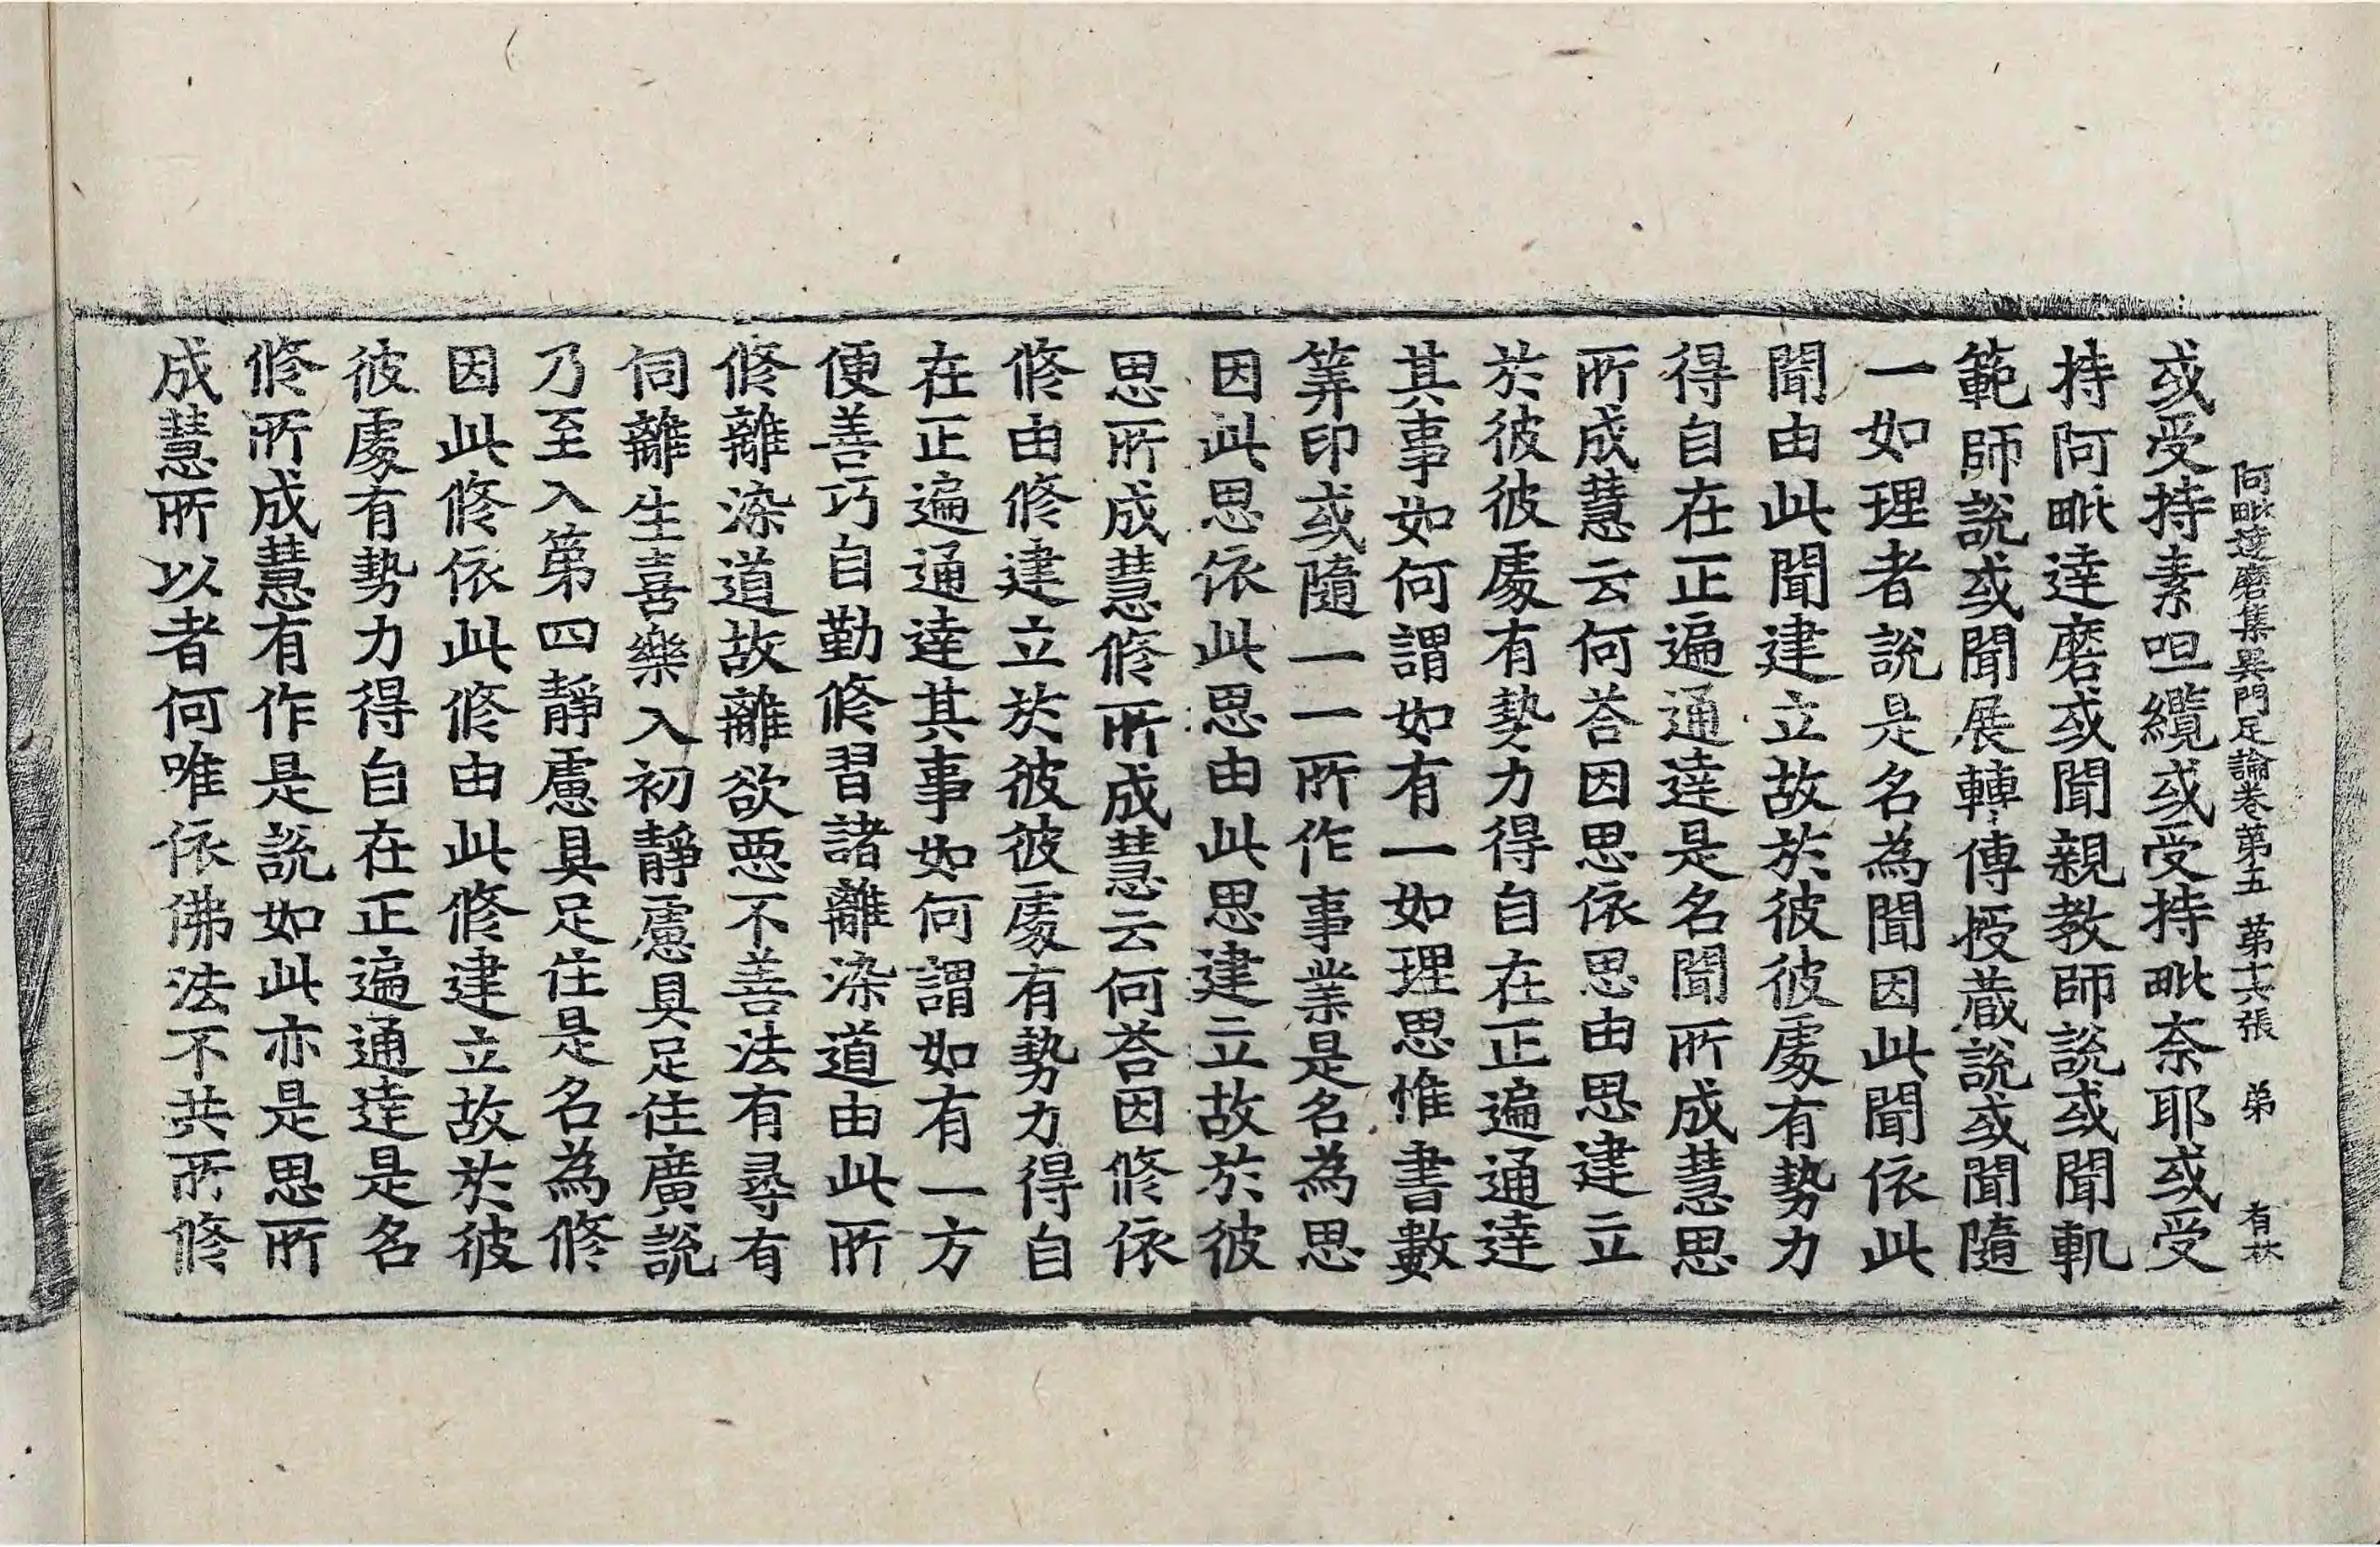 阿毗達磨集異門足論卷第五 第十六張 弟 有林
或受持素呾纜或受持毗奈耶或受
持阿毗達磨或聞親教師說或聞軌
範師說或聞展轉傳授藏說或聞隨
一如理者說是名為聞因此聞依此
聞由此聞建立故於彼彼處有勢力
得自在正遍通達是名聞所成慧思
所成慧云何荅因思依思由思建立
於彼彼處有勢力得自在正遍通達
其事如何謂如有一如理思惟書數
筭印或隨一一所作事業是名為思
因此思依此思由此思建立故於彼
思所成慧修所成慧云何荅因修依
修由修建立於彼彼處有勢力得自
在正遍通達其事如何謂如有一方
便善巧自勤修習諸離染道由此所
修離染道故離欲惡不善法有尋有
伺離生喜樂入初靜慮具足住廣說
乃至入第四靜慮具足住是名為修
因此修依此修由此修建立故於彼
彼處有勢力得自在正遍通達是名
修所成慧有作是說如此亦是思所
成慧所以者何唯依佛法不共所修